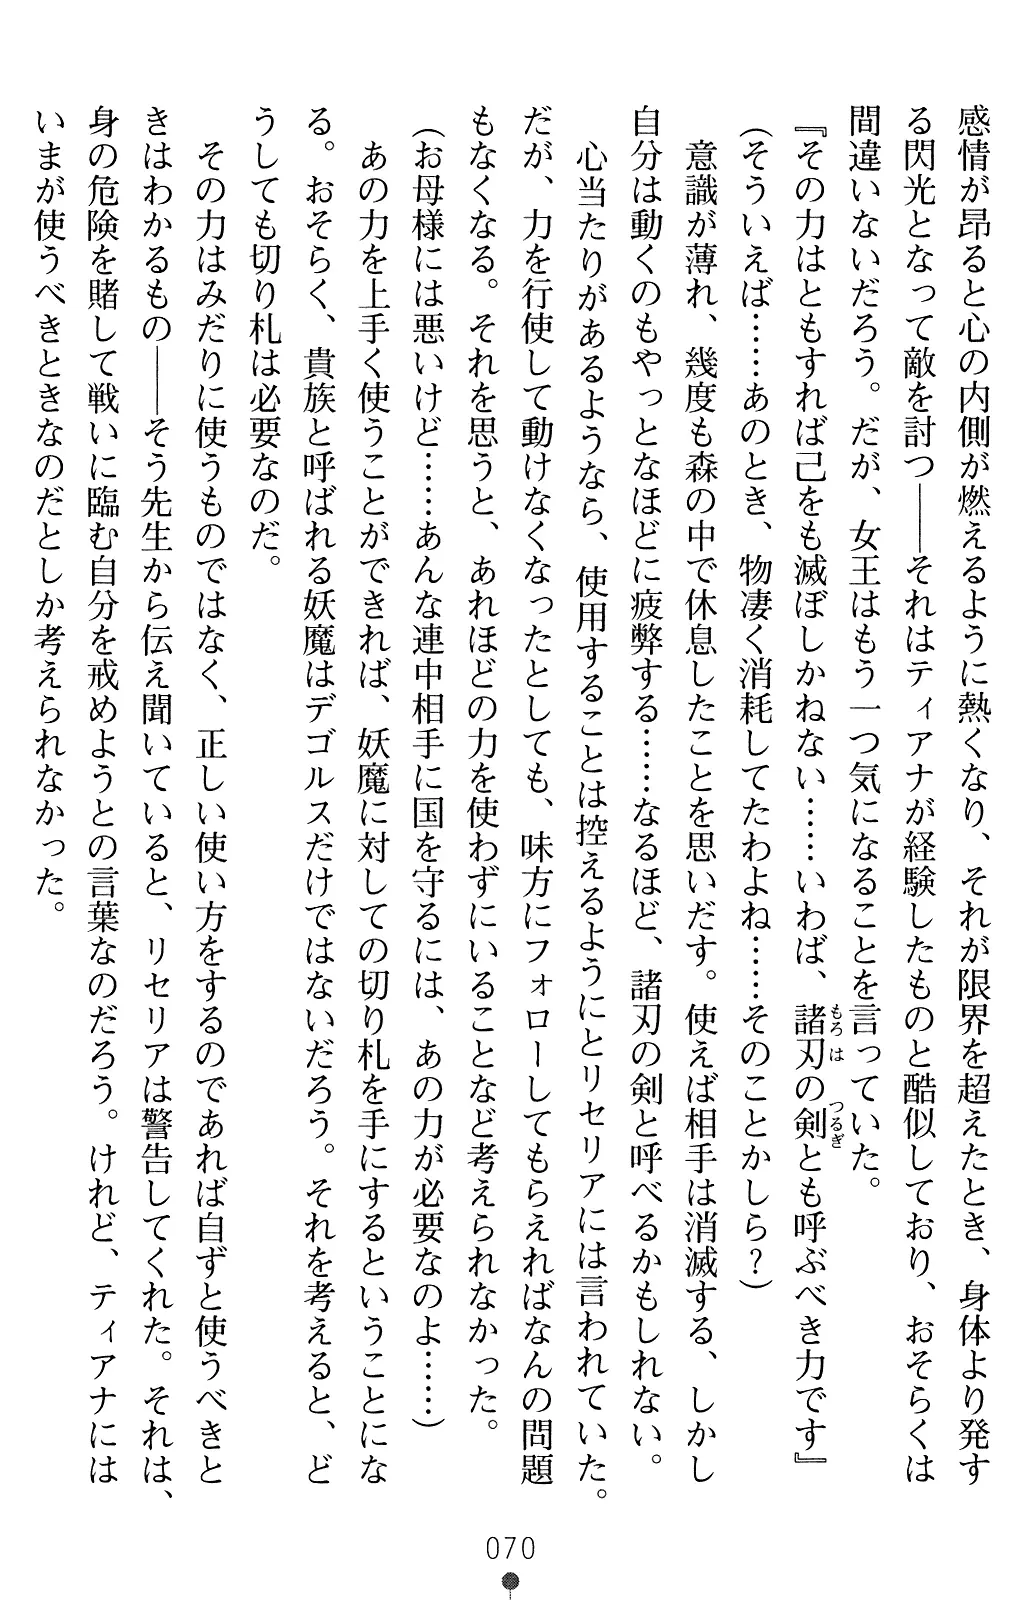 感情が昂ると心の内側が燃えるように熱くなり、それが限界を超えたとき、身体より発す
る閃光となって敵を討つ――それはティアナが経験したものと酷似しており、おそらくは
間違いないだろう。だが、女王はもう一つ気になることを言っていた。
『その力はともすれば己をも滅ぼしかねない……いわば、諸刃の剣とも呼ぶべき力です』
もろは つるぎ
（そういえば……あのとき、物凄く消耗してたわよね……そのことかしら？）
　意識が薄れ、幾度も森の中で休息したことを思いだす。使えば相手は消滅する、しかし
自分は動くのもやっとなほどに疲弊する……なるほど、諸刃の剣と呼べるかもしれない。
　心当たりがあるようなら、使用することは控えるようにとリセリアには言われていた。
だが、力を行使して動けなくなったとしても、味方にフォローしてもらえればなんの問題
もなくなる。それを思うと、あれほどの力を使わずにいることなど考えられなかった。
（お母様には悪いけど……あんな連中相手に国を守るには、あの力が必要なのよ……）
　あの力を上手く使うことができれば、妖魔に対しての切り札を手にするということにな
る。おそらく、貴族と呼ばれる妖魔はデゴルスだけではないだろう。それを考えると、ど
うしても切り札は必要なのだ。
　その力はみだりに使うものではなく、正しい使い方をするのであれば自ずと使うべきと
きはわかるもの――そう先生から伝え聞いていると、リセリアは警告してくれた。それは、
身の危険を賭して戦いに臨む自分を戒めようとの言葉なのだろう。けれど、ティアナには
いまが使うべきときなのだとしか考えられなかった。
070